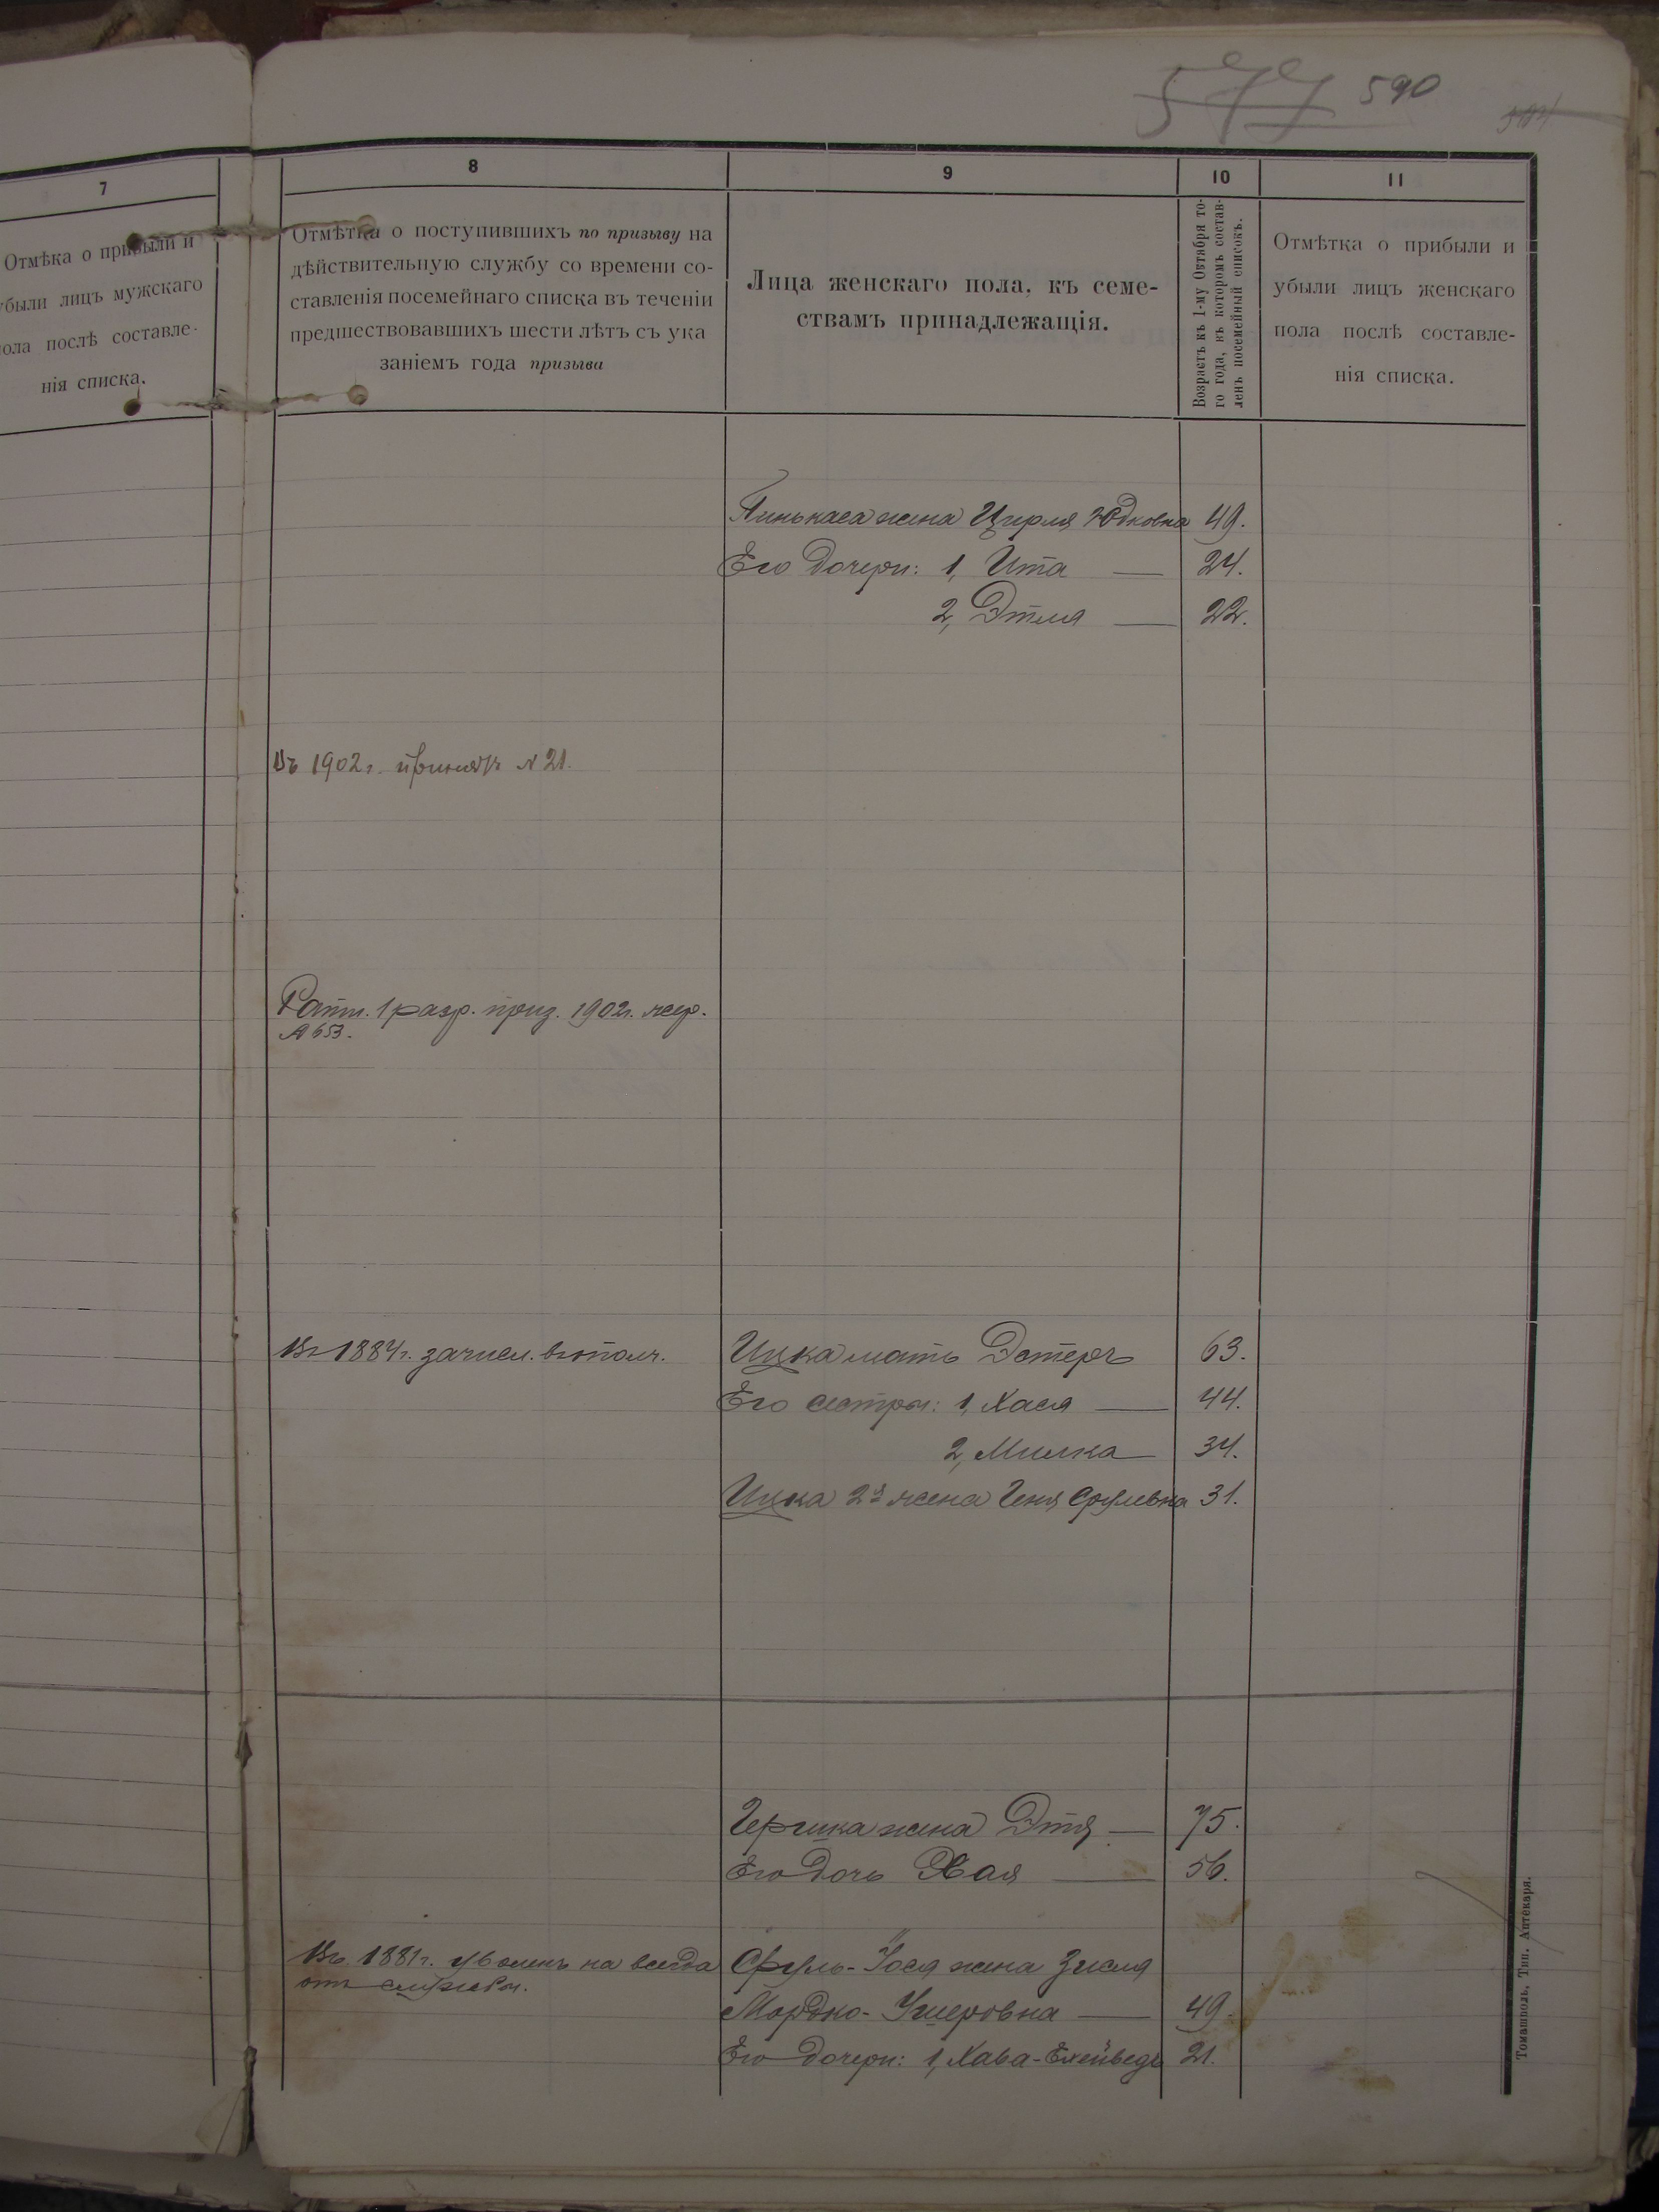 577 590
7
Отмѣка о прибыли и
убыли лицъ мужскаго
пола послѣ составле-
нія списка.
8
Отмѣтка о поступившихъ по призыву на
дѣйствительную службу со времени со-
ставленія посемейнаго списка въ теченіи
предшествовавшихъ шести лѣтъ съ ука
заніемъ года призыва
9
Лица женскаго пола, къ семе-
ствамъ принадлежащія.
10
Возрастъ къ 1-му Октября то-
го года, въ которомъ состав-
ленъ посемейный списокъ.
11
Отмѣтка о прибыли и
убыли лицъ женскаго
пола послѣ составле-
нія списка.
Пинькаса жена Цирля Юдковна 49.
Его дочери: 1, Ита — 24.
2, Этля — 22.
Въ 1902 г. принятъ № 21.
Ратн. 1 разр. приз. 1902 г. жер.
№ 653.
Въ 1884 г. зачисл. въ ополч. Ицка мать Эстеръ 63.
Его сестры: 1, Хася — 44.
2, Милка — 34.
Ицка 2я жена Геня Срулевна 31.
Гершка жена Этя — 75.
Его дочь Хая — 56.
Въ 1881 г. уволенъ на всегда Сруль-Іося жена Зисля
отъ службы.
Мордко-Ушеровна — 49.
Его дочери: 1, Хава-Ехейведъ 21.
Томашполь, Тип. Аптекаря.